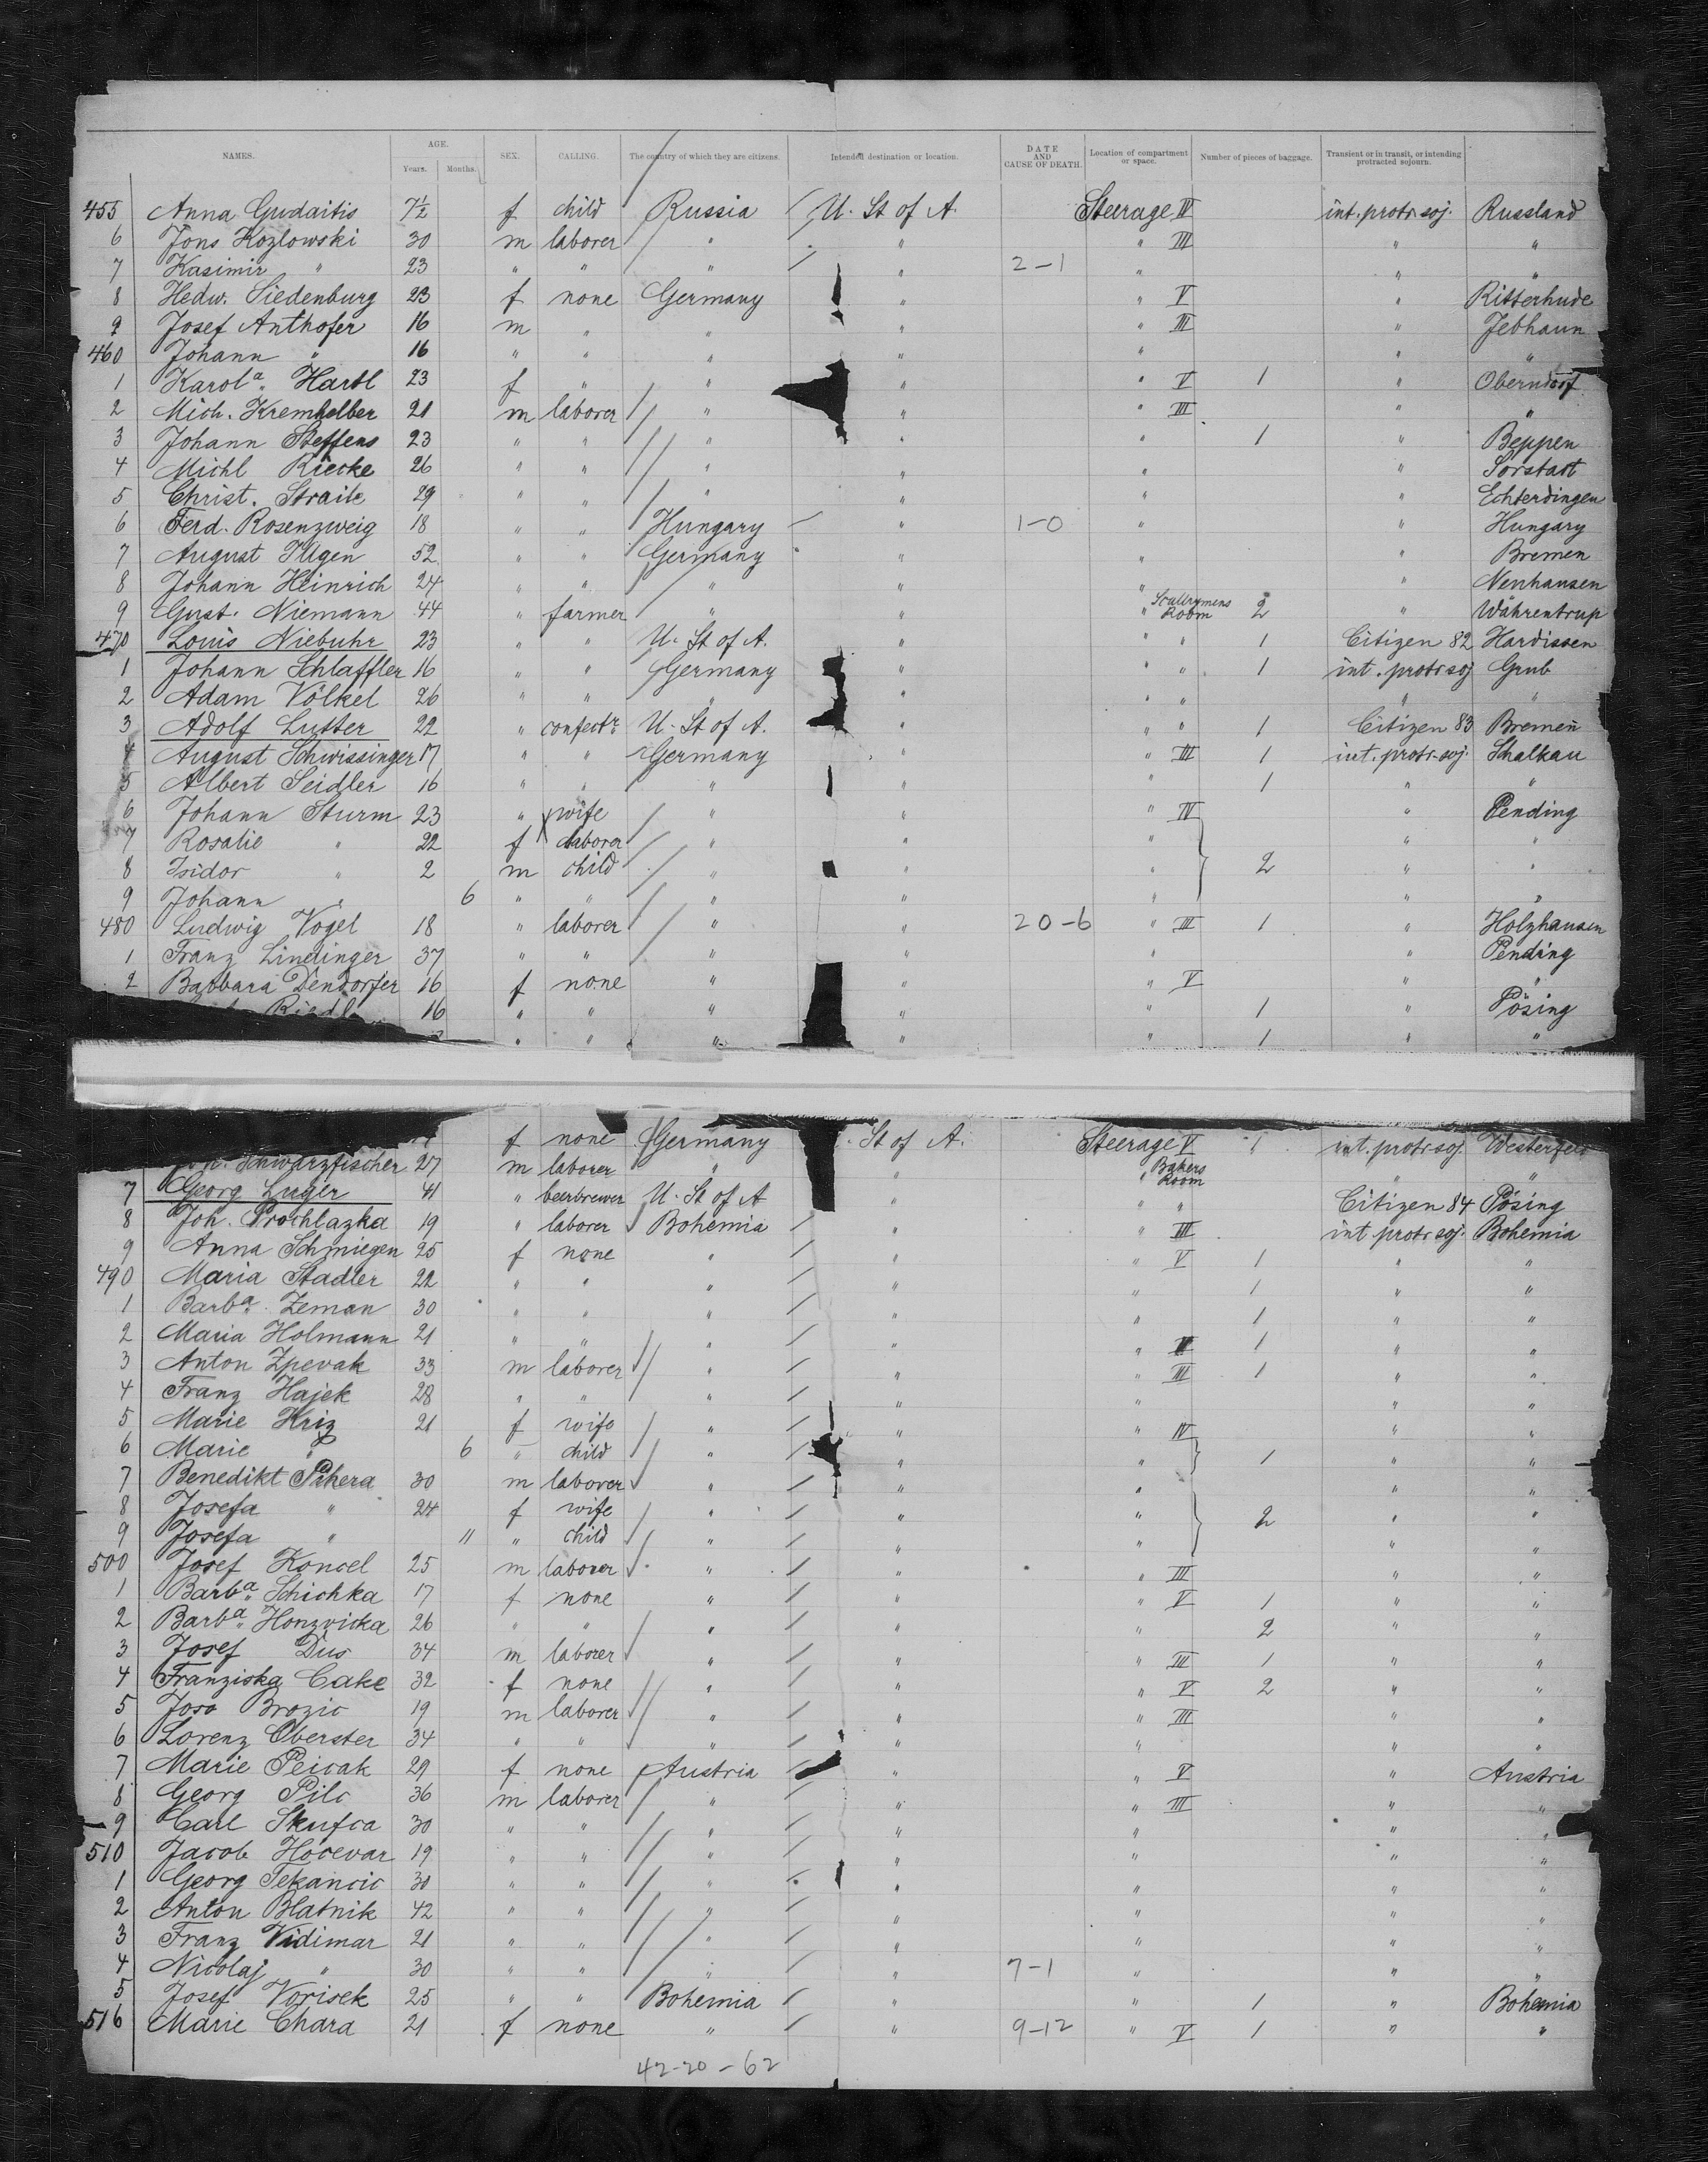 NAMES. AGE. Years. Months. SEX. CALLING. The country of which they are citizens. Intended destination or location. DATE AND CAUSE OF DEATH. Location of compartment or space. Number of pieces of baggage. Transient or in transit, or intending protracted sojourn.
455 Anna Gudaitis 7½ f child Russia U. St of A. Steerage IV int. protr. soj. Russland
6 Jons Kozlowski 30 m laborer " " " III " "
7 Kasimir " 23 " " " " 2-1 " " "
8 Hedw. Siedenburg 23 f none Germany " " V " Ritterhude
9 Josef Anthofer 16 m " " " " III " Jebhaun
460 Johann " 16 " " " " " " "
1 Karola Hartl 23 f " " " " V 1 " Oberndorf
2 Mich. Kremhelber 21 m laborer " " " III " "
3 Johann Steffens 23 " " " " " 1 " Beppen
4 Michl Riecke 26 " " " " " " Sorstadt
5 Christ. Straile 29 " " " " " " Echterdingen
6 Ferd. Rosenzweig 18 " " Hungary " 1-0 " " Hungary
7 August Illgen 52 " " Germany " " " Bremen
8 Johann Heinrich 24 " " " " " " Neuhausen
9 Gust. Niemann 44 " farmer " " " Room 2 " Währentrup
470 Louis Niebuhr 23 " " U. St of A. " " " 1 Citizen 82 Hardissen
1 Johann Schlaffler 16 " " Germany " " " 1 int. protr. soj Grub
2 Adam Völkel 26 " " " " " " " "
3 Adolf Lutter 22 " confectr. U. St of A. " " " 1 Citizen 83 Bremen
4 August Schwissinger 17 " " Germany " " III 1 int. protr. soj. Schalkau
5 Albert Seidler 16 " " " " " 1 " "
6 Johann Sturm 23 " wife " " " IV " Pending
7 Rosalie " 22 f laborer " " " " "
8 Isidor " 2 m child " " " 2 " "
9 Johann " 6 " " " " " " "
480 Ludwig Vogel 18 " laborer " " 20-6 " III 1 " Holzhausen
1 Franz Lindinger 37 " " " " " " Pending
2 Barbara Dendorfer 16 f none " " " V " "
Riedl 16 " " " " " 1 " Pösing
" " " " " 1 " "
f none Germany St of A. Steerage V 1 int. protr. soj. Westerfeld
Joh. Schwarzfischer 27 m laborer " " " Bakers Room " "
7 Georg Luger 41 " beerbrewer U. St of A " " " Citizen 84 Pösing
8 Joh. Prochlazka 19 " laborer Bohemia " " III int. protr. soj. Bohemia
9 Anna Schmiegen 25 f none " " " V 1 " "
490 Maria Stadler 22 " " " " " 1 " "
1 Barba. Zeman 30 " " " " " 1 " "
2 Maria Holmann 21 " " " " " V 1 " "
3 Anton Zpevak 33 m laborer " " " III 1 " "
4 Franz Hajek 28 " " " " " " "
5 Marie Kriz 21 f wife " " " IV " "
6 Marie " 6 " child " " " 1 " "
7 Benedikt Pihera 30 m laborer " " " " "
8 Josefa " 24 f wife " " " 2 " "
9 Josefa " 11 " child " " " " "
500 Josef Koncel 25 m laborer " " " III " "
1 Barba. Schichka 17 f none " " " V 1 " "
2 Barba. Honzvicka 26 " " " " " 2 " "
3 Josef Dus 34 m laborer " " " III 1 " "
4 Franziska Cake 32 f none " " " V 2 " "
5 Joso Brozic 19 m laborer " " " III " "
6 Lorenz Oberster 34 " " " " " " "
7 Marie Peicak 29 f none Austria " " V " Austria
8 Georg Pilc 36 m laborer " " " III " "
9 Carl Skufca 30 " " " " " " "
510 Jacob Hocevar 19 " " " " " " "
1 Georg Tekancic 30 " " " " " " "
2 Anton Blatnik 42 " " " " " " "
3 Franz Vidimar 21 " " " " " " "
4 Nicolaj " 30 " " " " 7-1 " " "
5 Josef Vorisek 25 " " Bohemia " " 1 " Bohemia
516 Marie Chara 21 f none " " 9-12 " V 1 " "
42-20-62